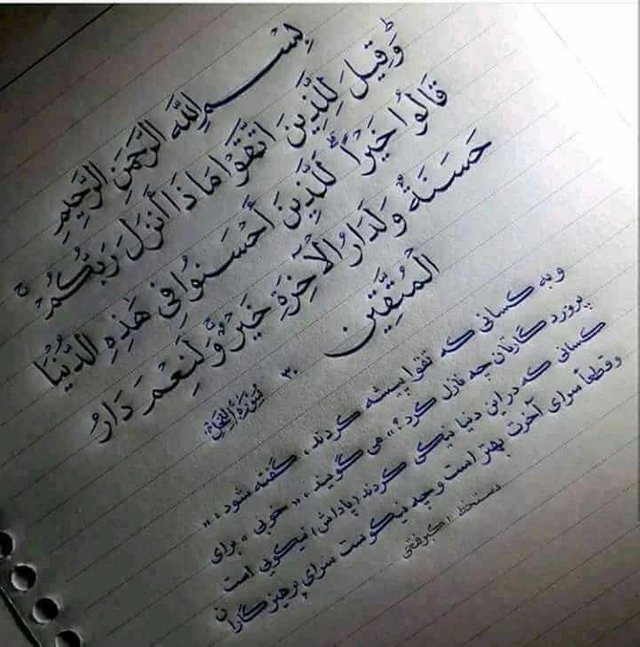 بِسْمِ اللَّهِ الرَّحْمَنِ الرَّحِيمِ
وَقِيلَ لِلَّذِينَ اتَّقَوْا مَاذَا أَنْزَلَ رَبُّكُمْ
قَالُوا خَيْرًا لِلَّذِينَ أَحْسَنُوا فِي هَذِهِ الدُّنْيَا
حَسَنَةٌ وَلَدَارُ الْآخِرَةِ خَيْرٌ وَلَنِعْمَ دَارُ
الْمُتَّقِينَ
۳۰
و به کسانی که تقوا پیشه کردند، گفته شود، «
پروردگارتان چه نازل کرد؟» می گویند، «خوبی» برای
کسانی که در این دنیا نیکی کردند (پاداش) نیکویی است
و قطعاً سرای آخرت بهتر است و چه نیکوست سرای پرهیزگاران
دستخط